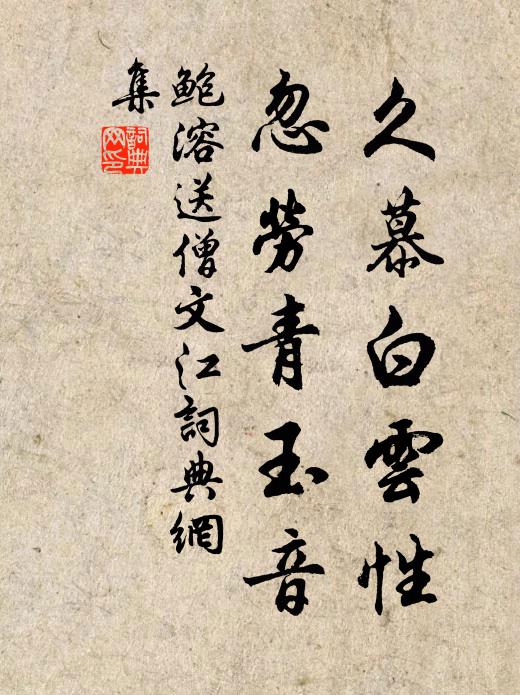 久慕白雲性
忽勞青玉音
鮑溶送僧文江詞典網
集
詞典
网印